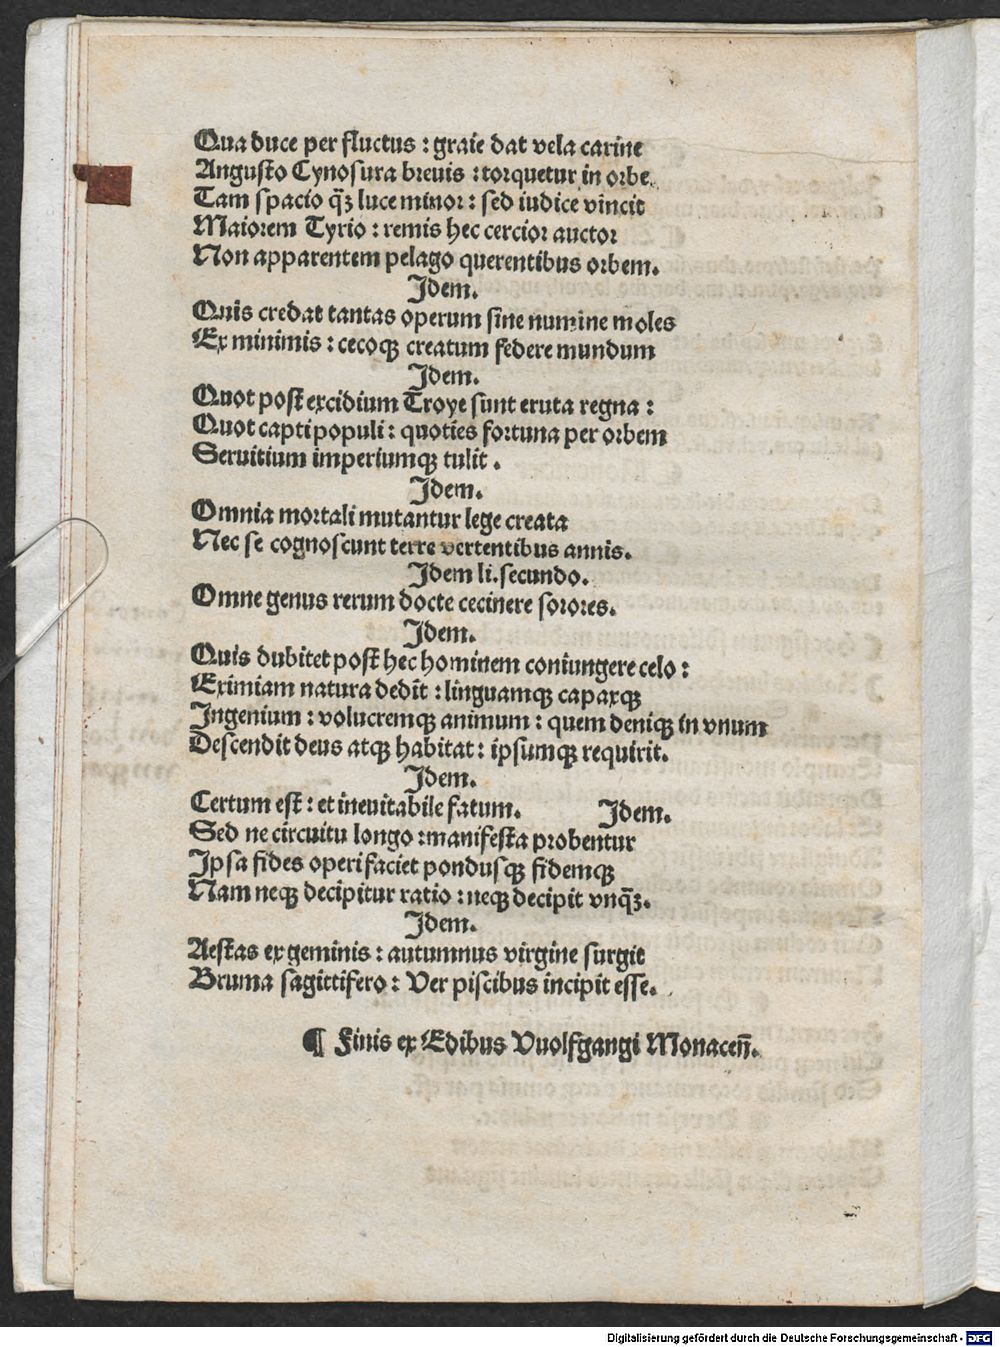 Qua duce per fluctus : graie dat vela carine
Angusto Cynosura breuis : torquetur in orbe.
Tam spacio qȝ̃ luce minor : sed iudice vincit
Maiorem Tyrio : remis hec cercior auctor
Non apparentem pelago querentibus orbem.
Idem.
Quis credat tantas operum sine numine moles
Ex minimis : cecoqꝫ creatum federe mundum
Idem.
Quot post excidium Troye sunt eruta regna :
Quot capti populi : quoties fortuna per orbem
Seruitium imperiumqꝫ tulit .
Idem.
Omnia mortali mutantur lege creata
Nec se cognoscunt terre vertentibus annis.
Idem li. secundo.
Omne genus rerum docte cecinere sorores.
Idem.
Quis dubitet post hec hominem coniungere celo :
Eximiam natura dedit : linguamqꝫ capaxqꝫ
Ingenium : volucremqꝫ animum : quem deniqꝫ in vnum
Descendit deus atqꝫ habitat : ipsumqꝫ requirit.
Idem.
Certum est : et ineuitabile fatum. Idem.
Sed ne circuitu longo : manifesta probentur
Ipsa fides operi faciet pondusqꝫ fidemqꝫ
Nam neqꝫ decipitur ratio : neqꝫ decipit vnqȝ̃.
Idem.
Aestas ex geminis : autumnus virgine surgit
Bruma sagittifero : Ver piscibus incipit esse.
¶ Finis ex Edibus Vuolfgangi Monaceñ.
Digitalisierung gefördert durch die Deutsche Forschungsgemeinschaft - DFG